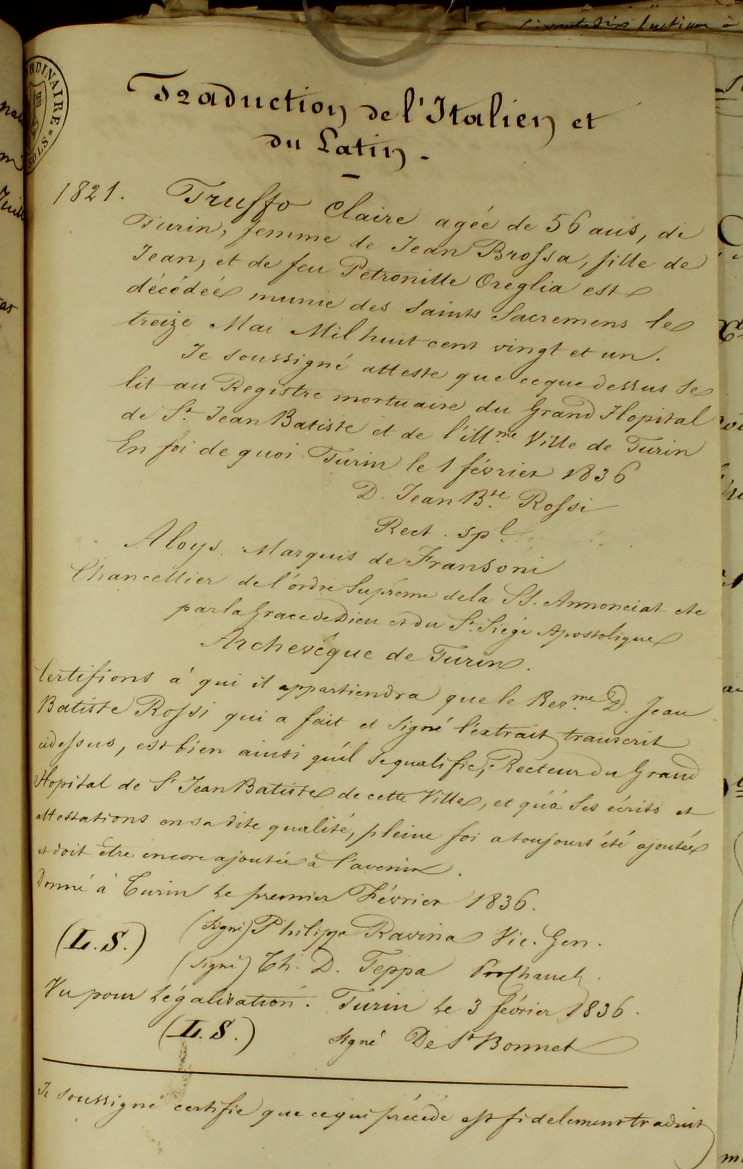 ORDINAIRE
Traduction de l'Italien et
du Latin.
1821. Truffo Claire agée de 56 ans, de
Turin, femme de Jean Brossa, fille de
Jean, et de feu Petronille Oreglia est
décédée munie des Saints Sacremens le
treize Mai Mil huit cent vingt et un.
Je soussigné atteste que ce que dessus se
lit au Registre mortuaire du Grand Hopital
de St. Jean Batiste et de l'ill.me Ville de Turin
En foi de quoi Turin le 1 février 1836
D. Jean B.te Rossi
Rect. spl.
Aloys. Marquis de Fransoni
Chancellier de l'ordre Supreme de la SS. Annonciat. etc
par la Grace de Dieu et du St. Siége Apostolique
Archevêque de Turin.
Certifions à qui il appartiendra que le Rev.me D. Jean
Batiste Rossi qui a fait et signé l'extrait transcrit
cidessus, est bien ainsi qu'il se qualifie, Recteur du Grand
Hopital de St Jean Batiste de cette Ville, et qu'à ses écrits et
attestations en sa dite qualité, pleine foi a toujours été ajoutée
et doit être encore ajoutée à l'avenir.
Donné à Turin le premier Février 1836.
(L.S.) (Signé) Philippe Ravina Vic. Gen.
(signé) Th. D. Teppa ProChancel.
Vu pour Légalisation. Turin le 3 février 1836.
(L.S.) signé De St Bonnet
Je soussigné certifie que ce qui précède est fidelement traduit